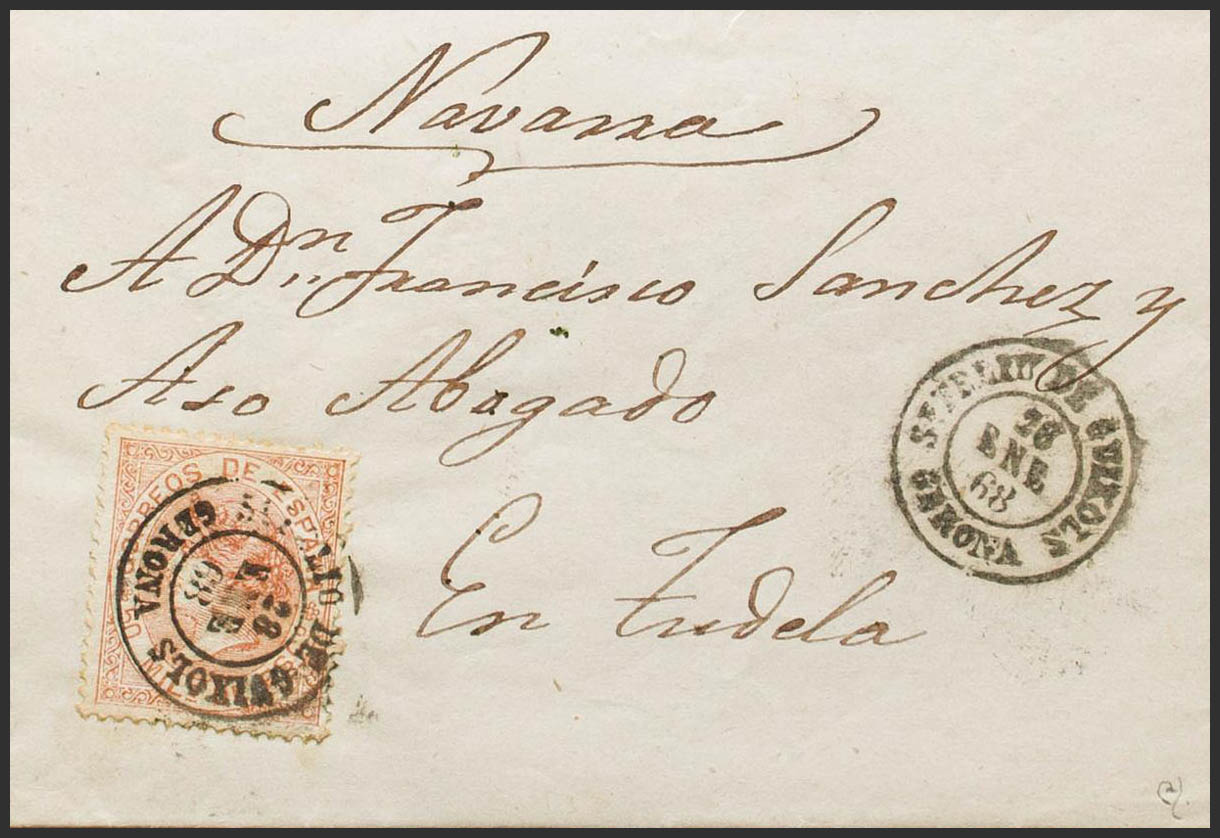 Navarra
A Dn Francisco Sanchez y
Aso Abogado
En Tudela
S. FELIU DE GUIXOLS
28
ENE
68
GERONA
CORREOS DE ESPAÑA
MIL
FELIU DE GUIXOLS
28
ENE
68
GERONA